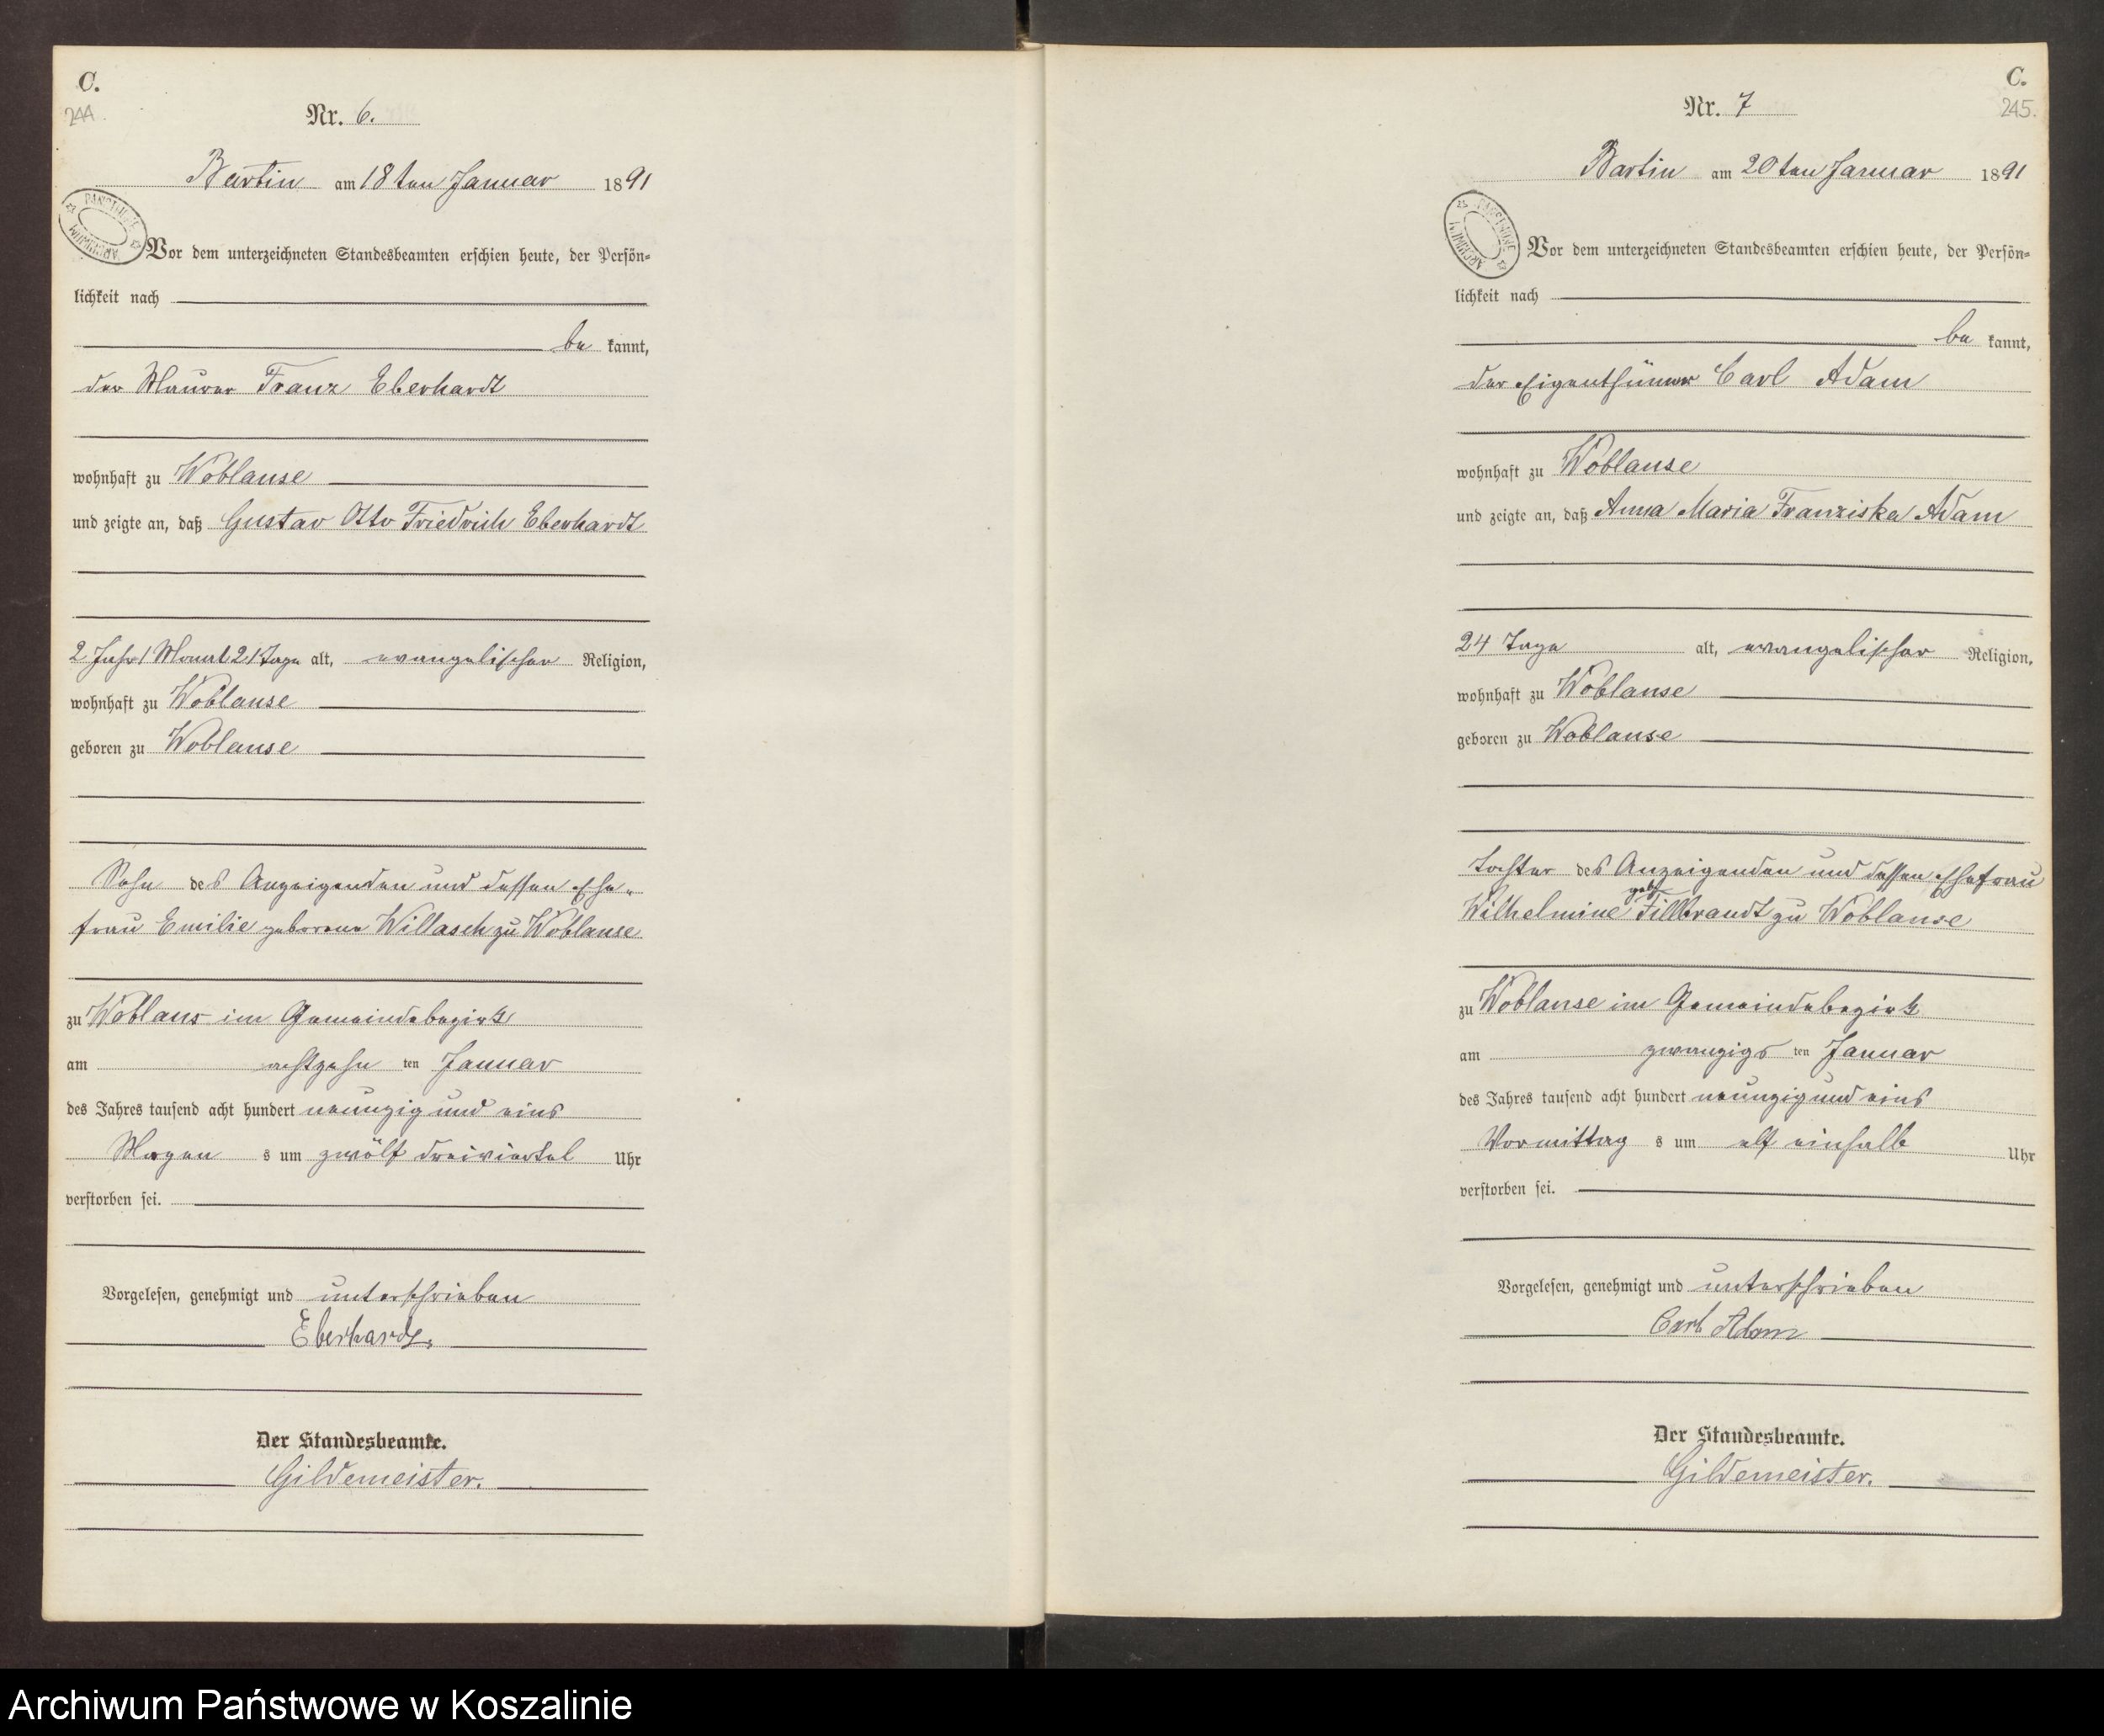 C.
244.
Nr. 6.
Bartin am 18ten Januar 1891
PAŃSTWOWE ARCHIWUM
Vor dem unterzeichneten Standesbeamten erschien heute, der Persön-
lichkeit nach
be kannt,
der Maurer Franz Eberhardt
wohnhaft zu Woblanse
und zeigte an, daß Gustav Otto Friedrich Eberhardt
2 Jahr 1 Monat 21 Tage alt, evangelischer Religion,
wohnhaft zu Woblanse
geboren zu Woblanse
Sohn des Anzeigenden und dessen Ehe-
frau Emilie geborene Willasch zu Woblanse
zu Woblans im Gemeindebezirk
am achtzehn ten Januar
des Jahres tausend acht hundert neunzig und eins
Morgen s um zwölf dreiviertel Uhr
verstorben sei.
Vorgelesen, genehmigt und unterschrieben
Eberhardt.
Der Standesbeamte.
Gildemeister.
C.
245.
Nr. 7
Bartin am 20ten Januar 1891
PAŃSTWOWE ARCHIWUM
Vor dem unterzeichneten Standesbeamten erschien heute, der Persön-
lichkeit nach
be kannt,
der Eigenthümer Carl Adam
wohnhaft zu Woblanse
und zeigte an, daß Anna Maria Franziska Adam
24 Tage alt, evangelischer Religion,
wohnhaft zu Woblanse
geboren zu Woblanse
Tochter des Anzeigenden und dessen Ehefrau
Wilhelmine geb. Fillbrandt zu Woblanse
zu Woblanse im Gemeindebezirk
am zwanzigs ten Januar
des Jahres tausend acht hundert neunzig und eins
Vormittag s um elf einhalb Uhr
verstorben sei.
Vorgelesen, genehmigt und unterschrieben
Carl Adam
Der Standesbeamte.
Gildemeister.
Archiwum Państwowe w Koszalinie